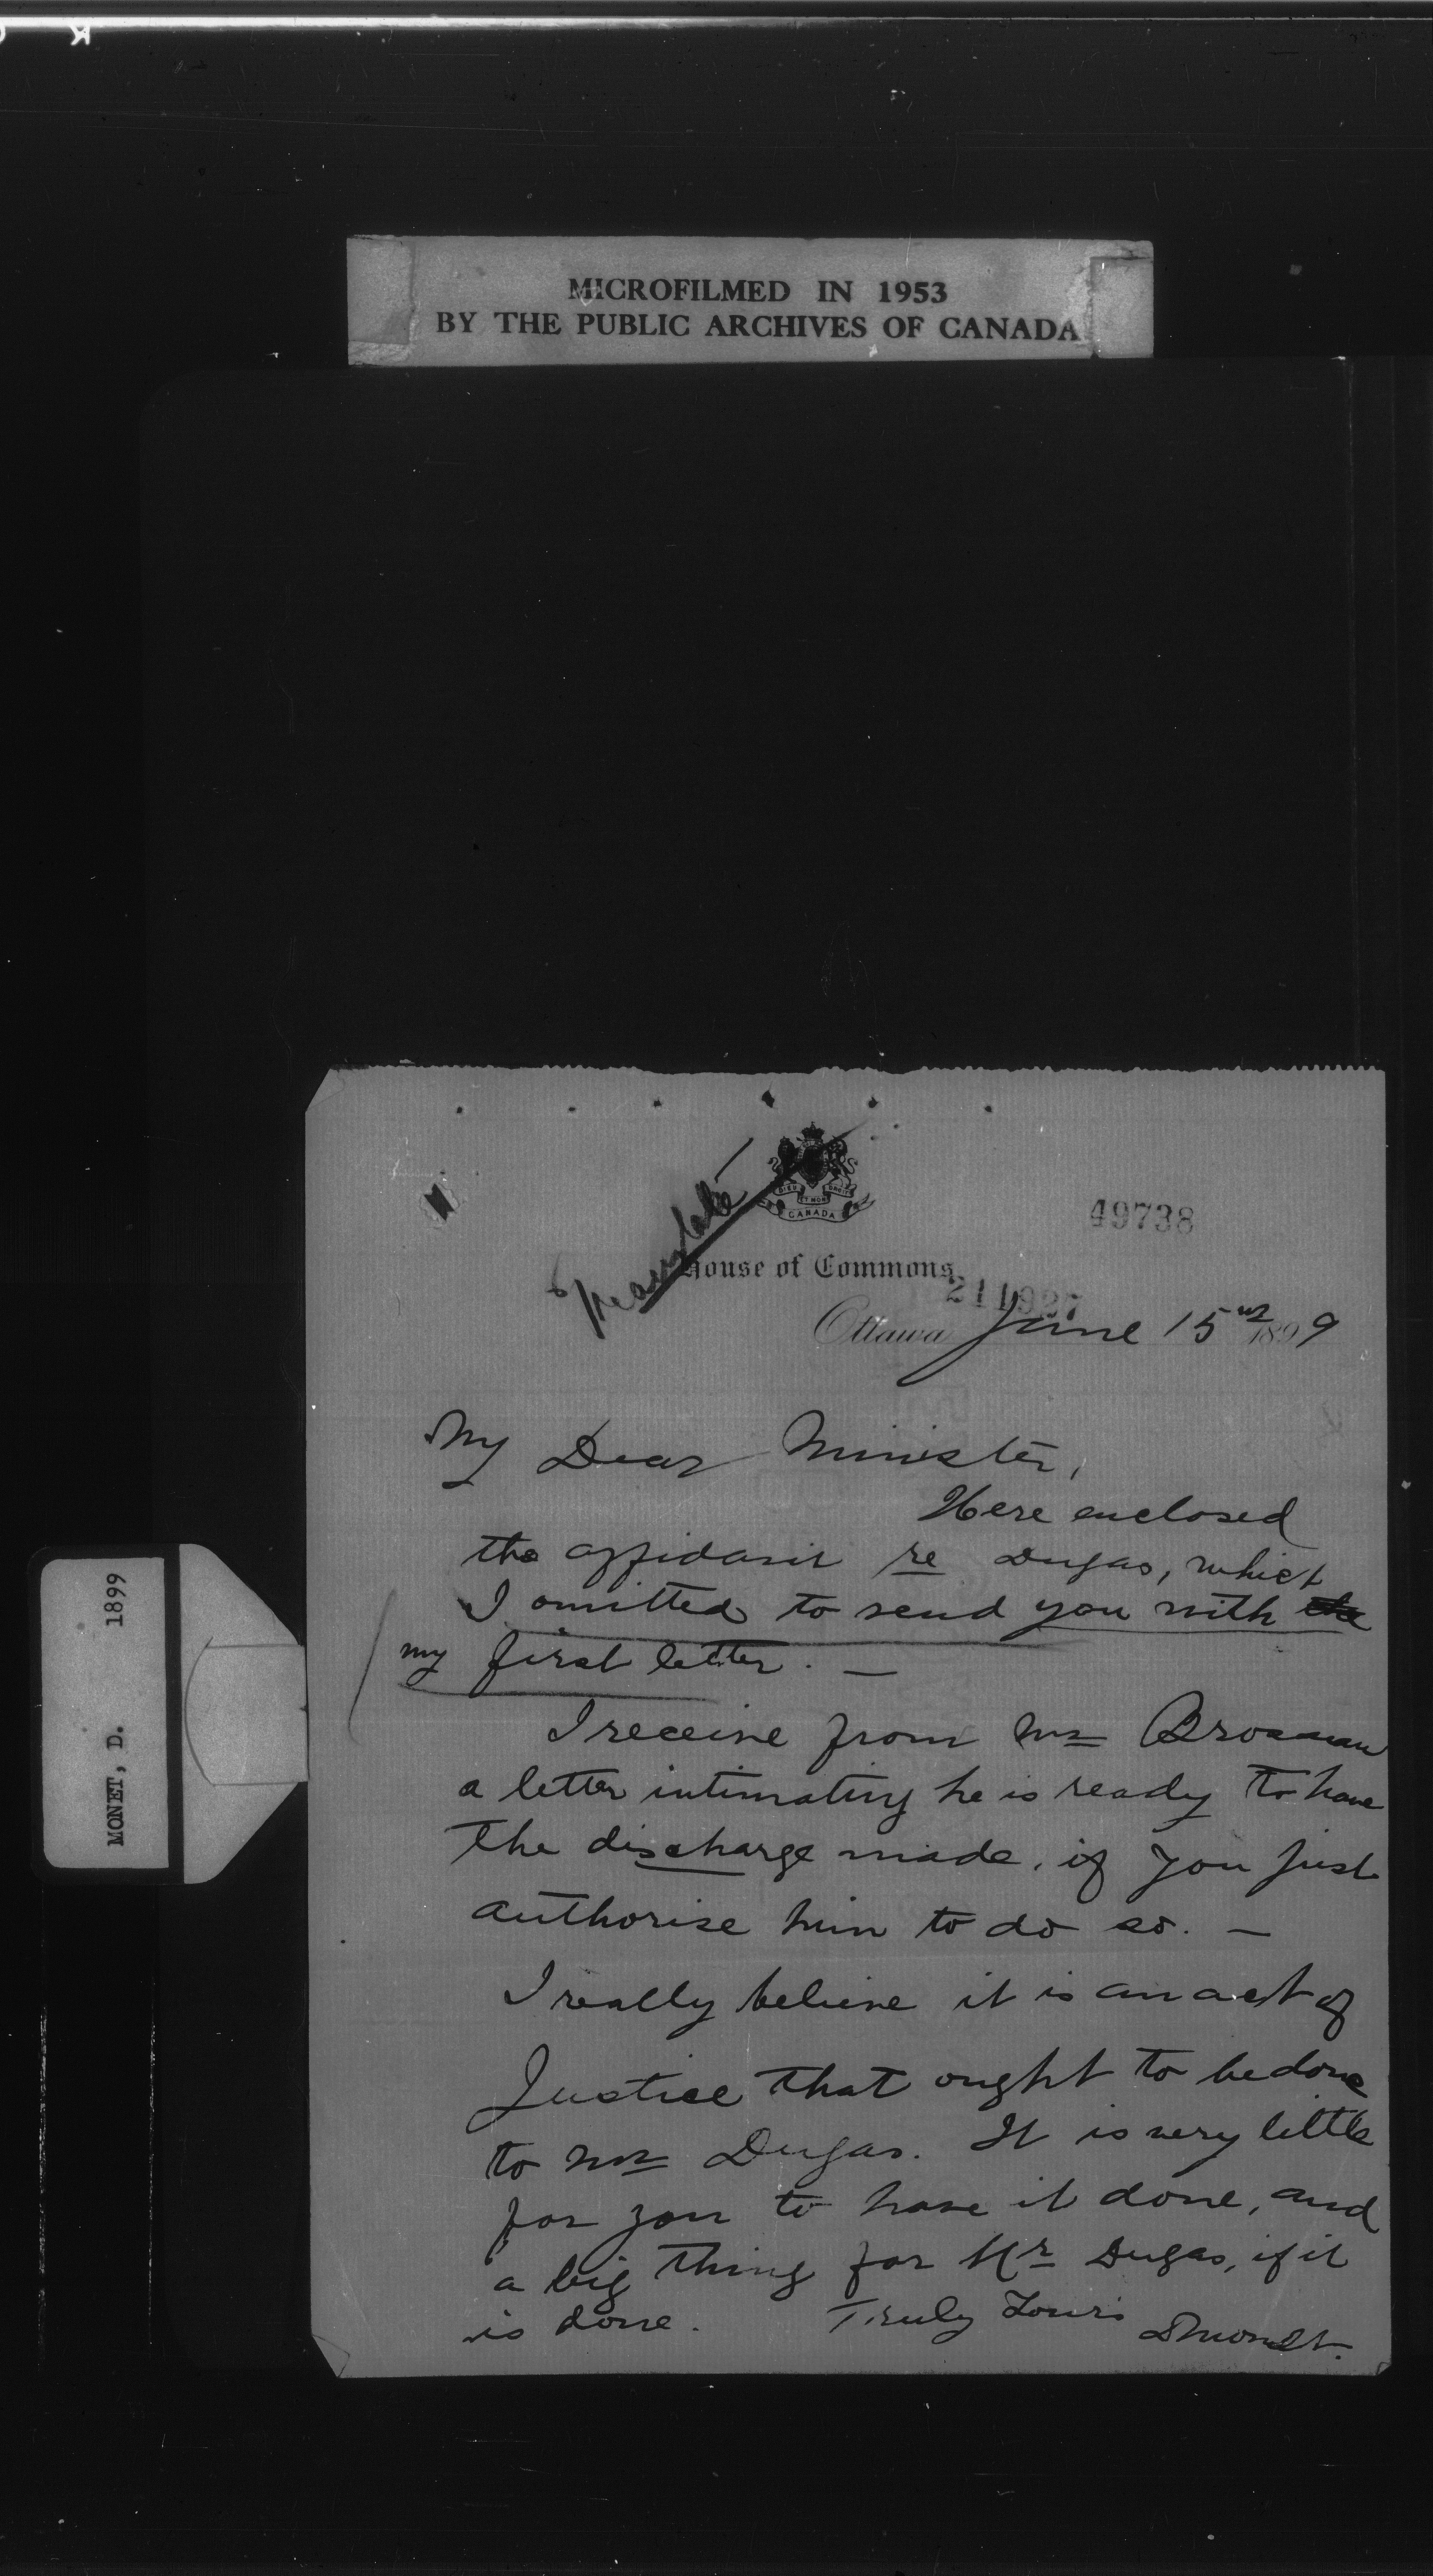 MICROFILMED IN 1953
BY THE PUBLIC ARCHIVES OF CANADA
MONET, D. 1899
DIEU ET MON DROIT
CANADA
49738
House of Commons
211927
Ottawa June 15 1899
My Dear Minister,
Here enclosed
the affidavit re Dugas, which
I omitted to send you with the
my first letter. —
I receive from Mr Brosseau
a letter intimating he is ready to have
the discharge made, if you just
authorise him to do so. —
I really believe it is an act of
Justice that ought to be done
to Mr Dugas. It is very little
for you to have it done, and
a big thing for Mr Dugas, if it
is done. Truly Yours
DMonet.